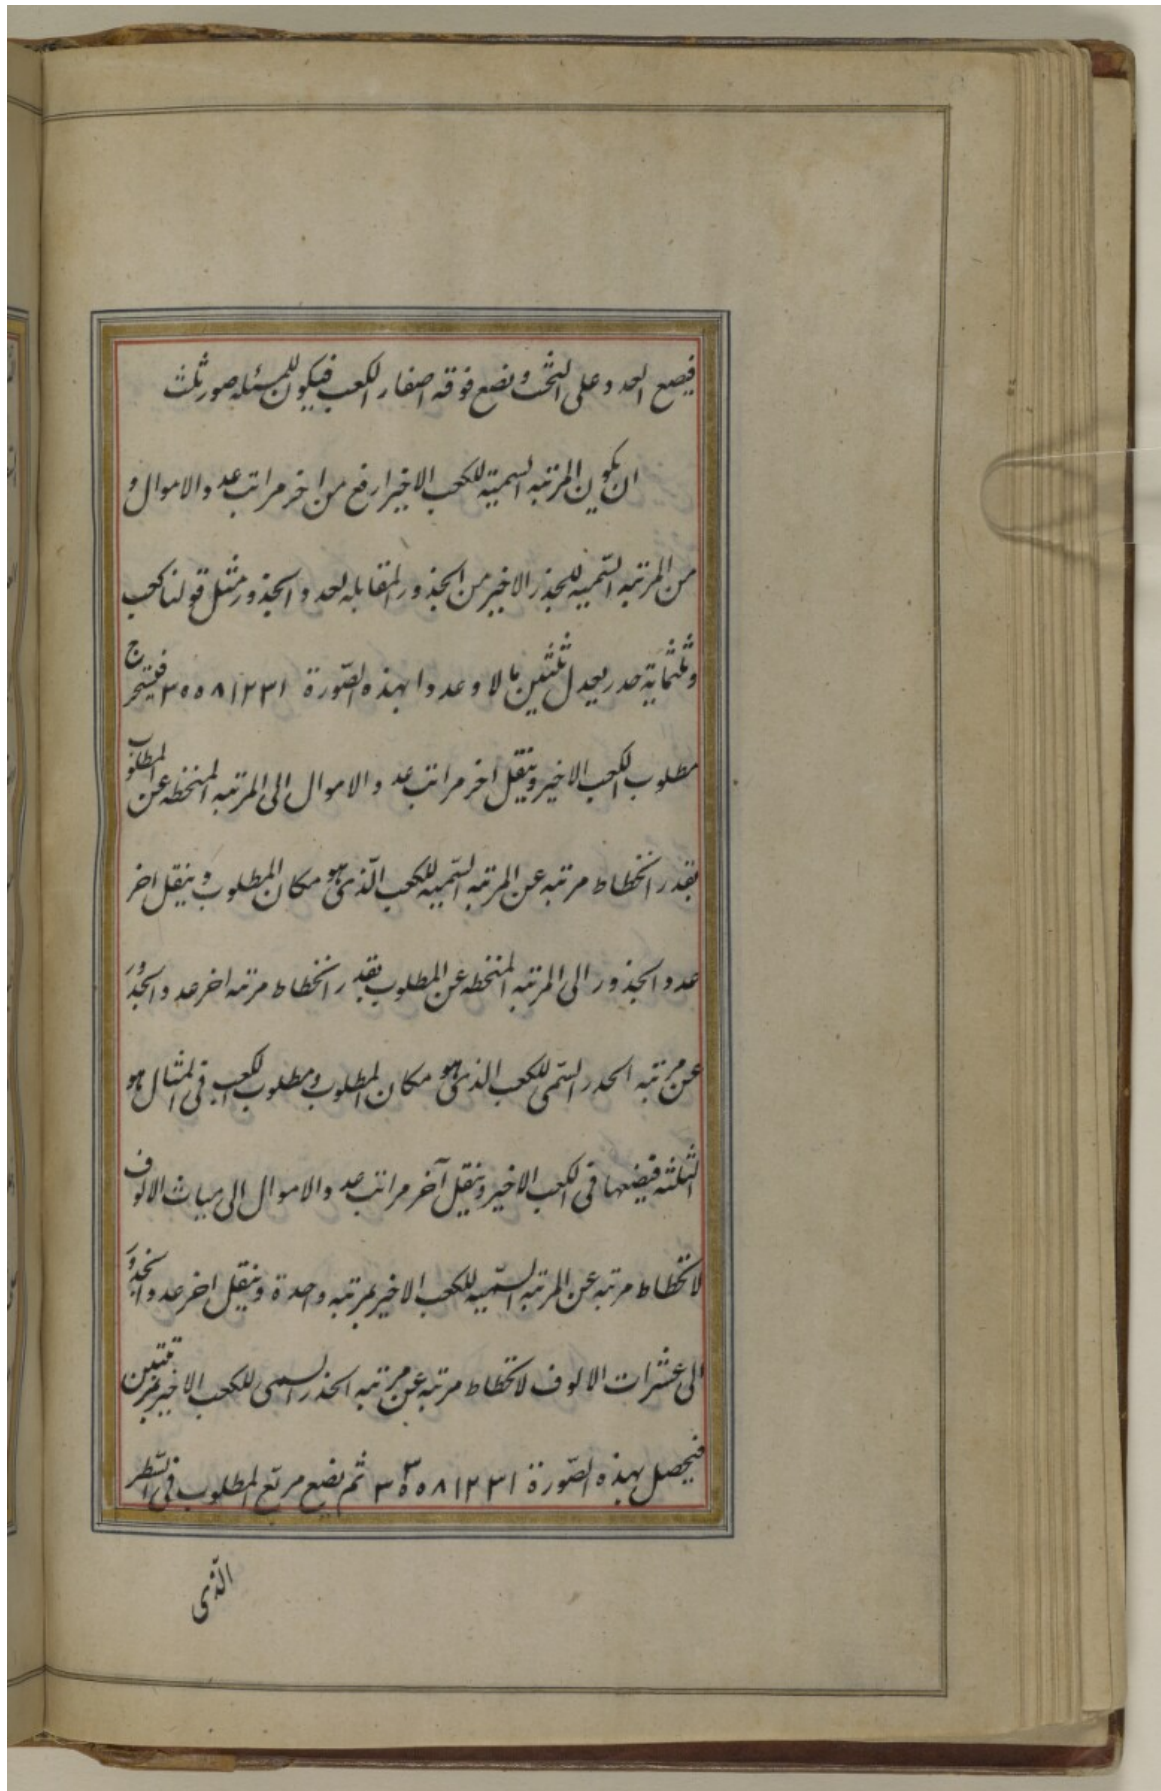 فيضع العدد على التخت ونضع فوقه اصفار الكعب فيكون للمسئله صور ثلث
ان يكون المرتبه السمية للكعب الاخير ارفع من اخر مراتب عدد الاموال و
من المرتبه السّمیه للجذر الاخير من الجذور المقابله لعدد الجذور مثل قولنا كعب
وثلثمائة حدر يعدل ثلثين مالا وعددا بهذه الصّورة ٣٥٥٨١٢٣١ فنستخرج
مطلوب الكعب الاخير وينقل اخر مراتب عدد الاموال الى المرتبه المنخطه عن المطلوب
بقدر انخطاط مرتبه عن المرتبه السّميه للكعب الّذى هو مكان المطلوب وينقل اخر
عدد الجذور الى المرتبه المنخطه عن المطلوب بقدر انخطاط مرتبه اخر عدد الجذور
عن مرتبه الحدر السّمى للكعب الذى هو مكان المطلوب ومطلوب الكعب فى المثال هو
الثلثه فيضعها فى الكعب الاخير وينقل آخر مراتب عدد الاموال الى ميات الالوف
لانخطاط مرتبه عن المرتبه السّميه للكعب الاخير بمرتبه واحدة وينقل اخر عدد الجذور
الى عشرات الالوف لانخطاط مرتبه عن مرتبه الجذر السمى للكعب الاخير بمرتبتين
فيحصل بهذه الصّورة ٣ ٣٥٥٨١٢٣١ ثم يضع مربّع المطلوب فى السّطر
الّذى